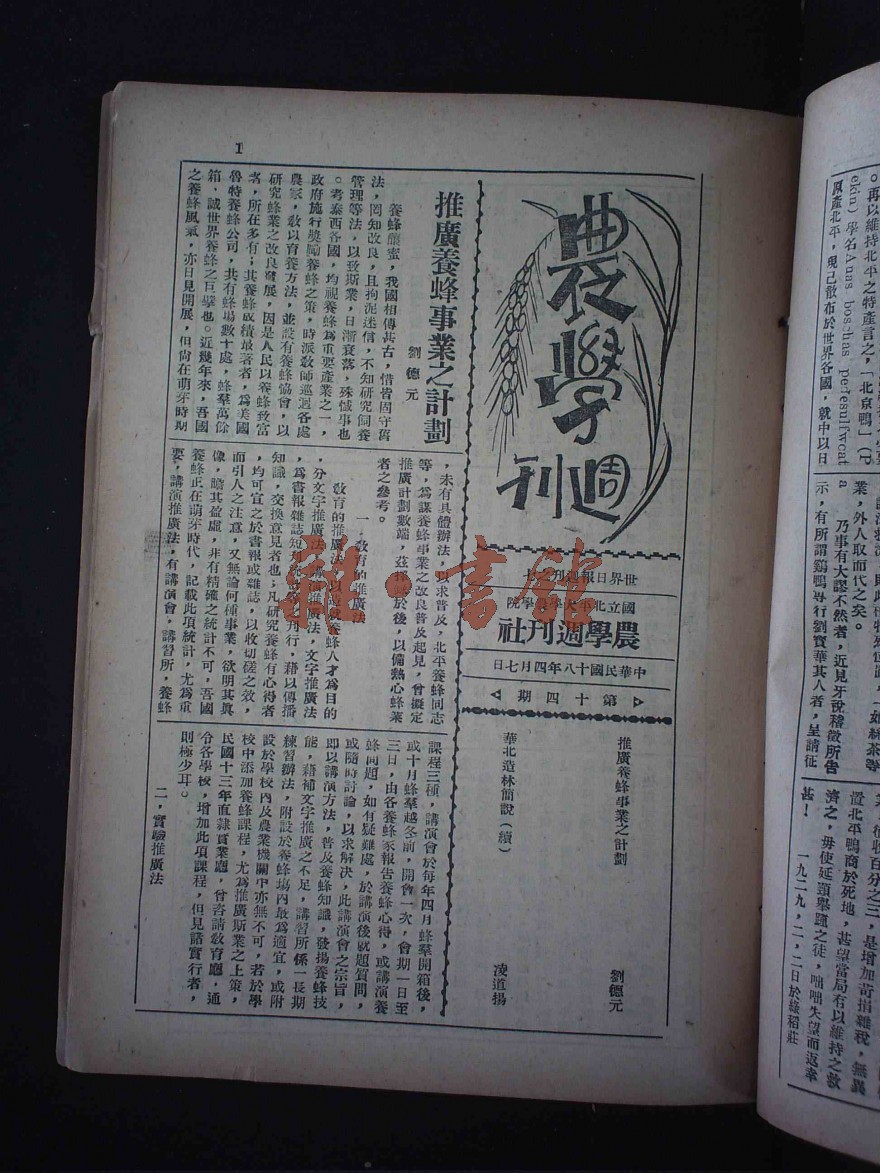 1
農學
週刊
世界日報週刊之七
國立北平大學農學院
農學週刊社
中華民國十八年四月七日
第十四期
推廣養蜂事業之計劃 劉德元
華北造林簡說（續） 凌道揚
推廣養蜂事業之計劃
劉德元
養蜂釀蜜，我國相傳甚古，惜皆固守舊
法，罔知改良，且拘泥迷信，不知研究飼養
管理等法，以致斯業，日漸衰落，殊憾事也
。考泰西各國，均視養蜂為重要產業之一，
政府施行獎勵養蜂之策，時派教師巡迴各處
農家，教以育養方法，並設有養蜂協會，以
研究蜂業之改良發展，因是人民以養蜂致富
者，所在多有；其養蜂成績最著者，為美國
魯特養蜂公司，共有蜂場數十處，蜂羣萬餘
箱，誠世界養蜂之巨擘也。近幾年來，吾國
之養蜂風氣，亦日見開展，但尙在萌芽時期
，未有具體辦法，以求普及，北平養蜂同志
等，為謀養蜂事業之改良普及起見，曾擬定
推廣計劃數端，茲擇錄於後，以備熱心蜂業
者之參考。
一，教育的推廣法
教育的推廣法，以造就養蜂人才為目的
，分文字推廣法，講演推廣法，文字推廣法
，為書報雜誌短刋之刊行，藉以傳播
知識，交換意見者也；凡研究養蜂有心得者
，均可宣之於書報或雜誌，以收切磋之效，
而引人之注意，又無論何種事業，欲明其眞
像，瞻其盈虛，非有精確之統計不可，吾國
養蜂正在萌芽時代，記載此項統計，尤為重
要，講演推廣法，有講演會，講習所，養蜂
課程三種，講演會於每年四月蜂羣開箱後，
或十月蜂羣越冬前，開會一次，會期一日至
三日，由各養蜂家報告養蜂心得，或講演養
蜂問題，如有疑難處，於講演後就題質問，
或隨時討論，以求解決，此講演會之宗旨，
即以講演方法，普及養蜂知識，發揚養蜂技
能，藉補文字推廣之不足，講習所係一長期
練習辦法，附設於養蜂塲內最為適宜，或附
設於學校內及農業機關中亦無不可，若於學
校中添加養蜂課程，尤為推廣斯業之上策，
民國十三年直隸實業廳，曾咨請敎育廳，通
令各學校，增加此項課程，但見諸實行者，
則極少耳。
二，實驗推廣法
。再以維持北平之特產言之，「北京鴨」(P
原產北平，現已散布於世界各國，就中以日
業，外人取而代之矣。
乃事有大謬不然者，近見牙稅稽徵所告
示，有所謂鷄鴨専行劉寶華其人者，呈請征
，是增加苛捐雜稅，無異
置北平鴨商於死地，甚望當局有以維持之救
濟之，毋使延頸舉踵之徒，咄咄失望而返幸
甚！
一九二九，二，二日於綠稻莊